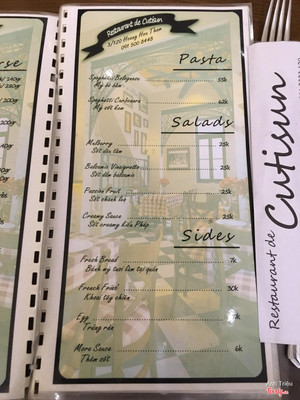 Restaurant de Cutisun
Pasta
Spaghetti Bolognese 55k
Mỳ bò bằm
Spaghetti Carbonara 62k
Mỳ sốt kem
Salads
Mulberry 25k
Sốt dâu tằm
Balsamic Vinaigrette 25k
Sốt dầu balsamic
Passion Fruit 25k
Sốt chanh leo
Creamy Sauce 25k
Sốt creamy kiểu Pháp
Sides
Fresh Bread 7k
Bánh mỳ tươi làm tại quán
French Fries 30k
Khoai tây chiên
Egg
Trứng rán
More Sauce 6k
Thêm sốt
Restaurant de
Cutisun